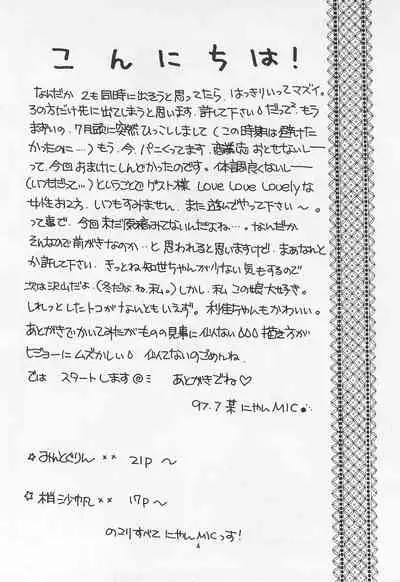 こんにちは！
なんだか 2も同時に出ろうと思ってたら、はっきりいってマズイ。
3の方だけ先に出てしまうと思います。許して下さい だって、もう
7月頭に突然ひっこししまして（この時集は避けた
かったのに…）もう、今、パニくってます。商業誌 おとせないしー
って、今回おまけにしんどかったのです。体調良くないしー
（いつもだって…）ということで ゲスト様 LOVE LOVE Lovelyな
女性お2方、いつもすみません。また遊んでやって下さい〜。
って事で、今回まだ原稿みてないんだよね…。なんだか
そんなので前がきなのか…と 思われると思いますけど、まあなんと
か許して下さい。きっとね 知世ちゃんが少ない気もするので
次は沢山だよ（冬だな、ね、私。）しかし、私 この娘大好き。
しれっとしたトコがなんともいえず。利佳ちゃんもかわいい。
あとがきでかいてみたがものの見事に似ない 描き方が
ヒジョーにムズかしい 似てないのごめんね
では スタートします@ミ あとがきでね♡
97.7 某 にゃんMIC
☆みんとぐりん ×× 21p 〜
☆梢沙帆 ×× 17p 〜
のこりすべて にゃんMICっす！
4